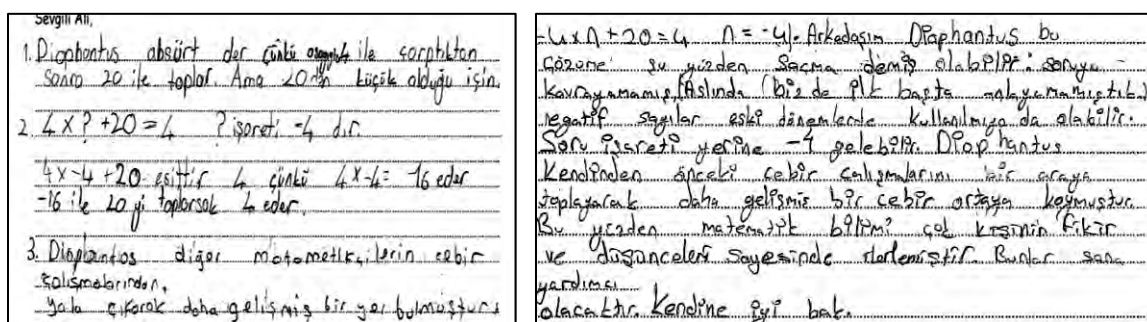 Sevgili Ali,
1. Diophantus absürt der çünkü ile çarptıktan
sonra 20 ile toplar. Ama 20 den küçük olduğu için.
2. 4 x ? + 20 = 4 ? işareti -4 dır.
4 x -4 + 20 eşittir 4 çünkü 4 x -4 = -16 eder
-16 ile 20 yi toplarsak 4 eder.
3. Diophantos diğer matametikçilerin cebir
çalışmalarından,
yola çıkarak daha gelişmiş bir yer bulmuştur.
-4xn+20=4 n = -4. Arkadaşım Diaphantus bu
çözüme şu yüzden saçma demiş olabilir: soruyu -
kavrayamamış, (Aslında biz de ilk başta anlayamamıştık.)
negatif sayılar eski dönemlerde kullanılmıyo da olabilir.
Soru işareti yerine -4 gelebilir. Diophantus
Kendinden önceki cebir çalışmalarını bir araya
toplayarak daha gelişmiş bir cebir ortaya koymuştur.
Bu yüzden matematik bilimi çok kişinin fikir
ve düşünceleri sayesinde ilerlemiştir. Bunlar sana
yardımcı
olacaktır. Kendine iyi bak.